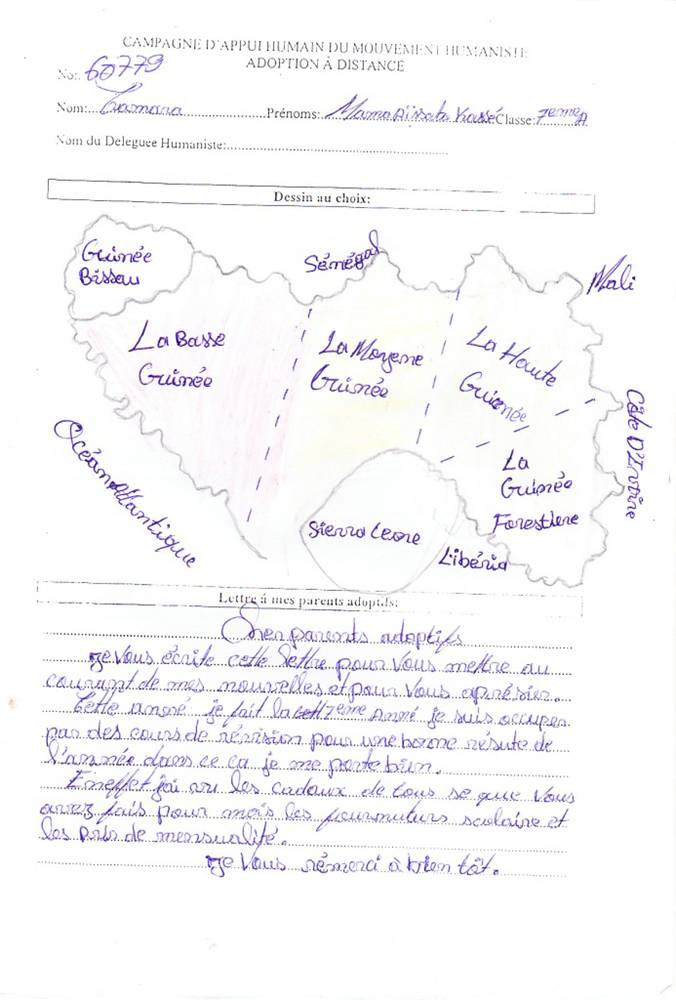 CAMPAGNE D'APPUI HUMAIN DU MOUVEMENT HUMANISTE
ADOPTION À DISTANCE
No:. 60779
Nom:... Camara ... Prénoms: Mama Aïssata Kassé Classe: 7eme A
Nom du Deleguee Humaniste:...
Dessin au choix:
Guinée
Bissau
Sénégal
Mali
La Basse
Guinée
La Moyene
Guinée
La Haute
Guinée
Côte D'Ivoire
Océan Atlantique
La
Guinée
Forestiere
Sierra leone
Libéria
Lettre á mes parents adoptifs:
Cher parents adoptifs
Je Vous écrite cette lettre pour Vous mettre au
courant de mes nouvelles et pour Vous aprésier.
Cette anné je fait la 7eme Anné je suis occuper
par des cours de révision pour une bonne résute de
l'année dans ce ça je me porte bien.
En effet j'ai vu les cadaux de tous se que Vous
avez fais pour mois les fournuturs scolaire et
les pris de mensualité.
Je Vous rémerci à bien tôt.